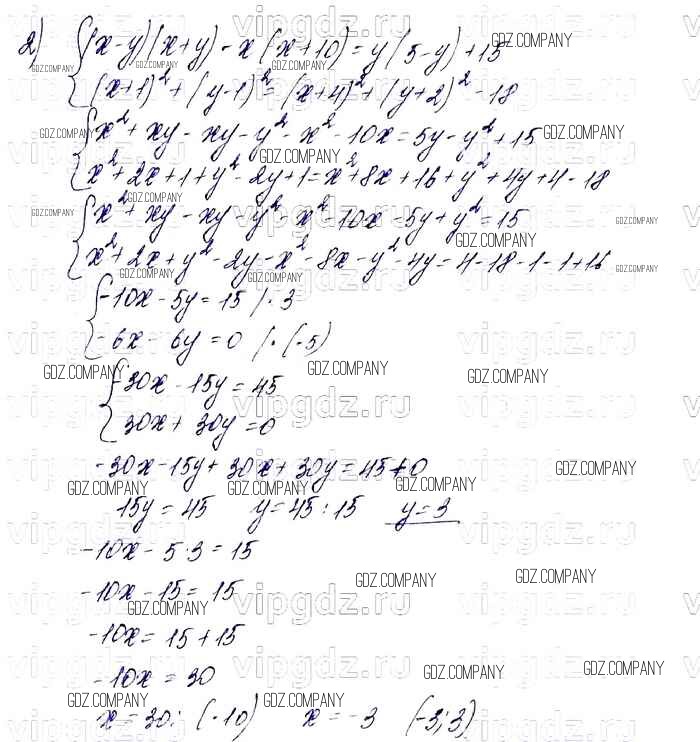 2) (x-y)(x+y)-x(x+10)=y(5-y)+15
(x+1)²+(y-1)²=(x+4)²+(y+2)²-18
x²+xy-xy-y²-x²-10x=5y-y²+15
x²+2x+1+y²-2y+1=x²+8x+16+y²+4y+4-18
x²+xy-xy-y²-x²-10x-5y+y²=15
x²+2x+y²-2y-x²-8x-y²-4y=4-18-1-1+16
-10x-5y=15 |·3
-6x-6y=0 |·(-5)
-30x-15y=45
30x+30y=0
-30x-15y+30x+30y=45+0
15y=45 y=45:15 y=3
-10x-5·3=15
-10x-15=15
-10x=15+15
-10x=30
x=30:(-10) x=-3 (-3;3)
GDZ.COMPANY
vipgdz.ru